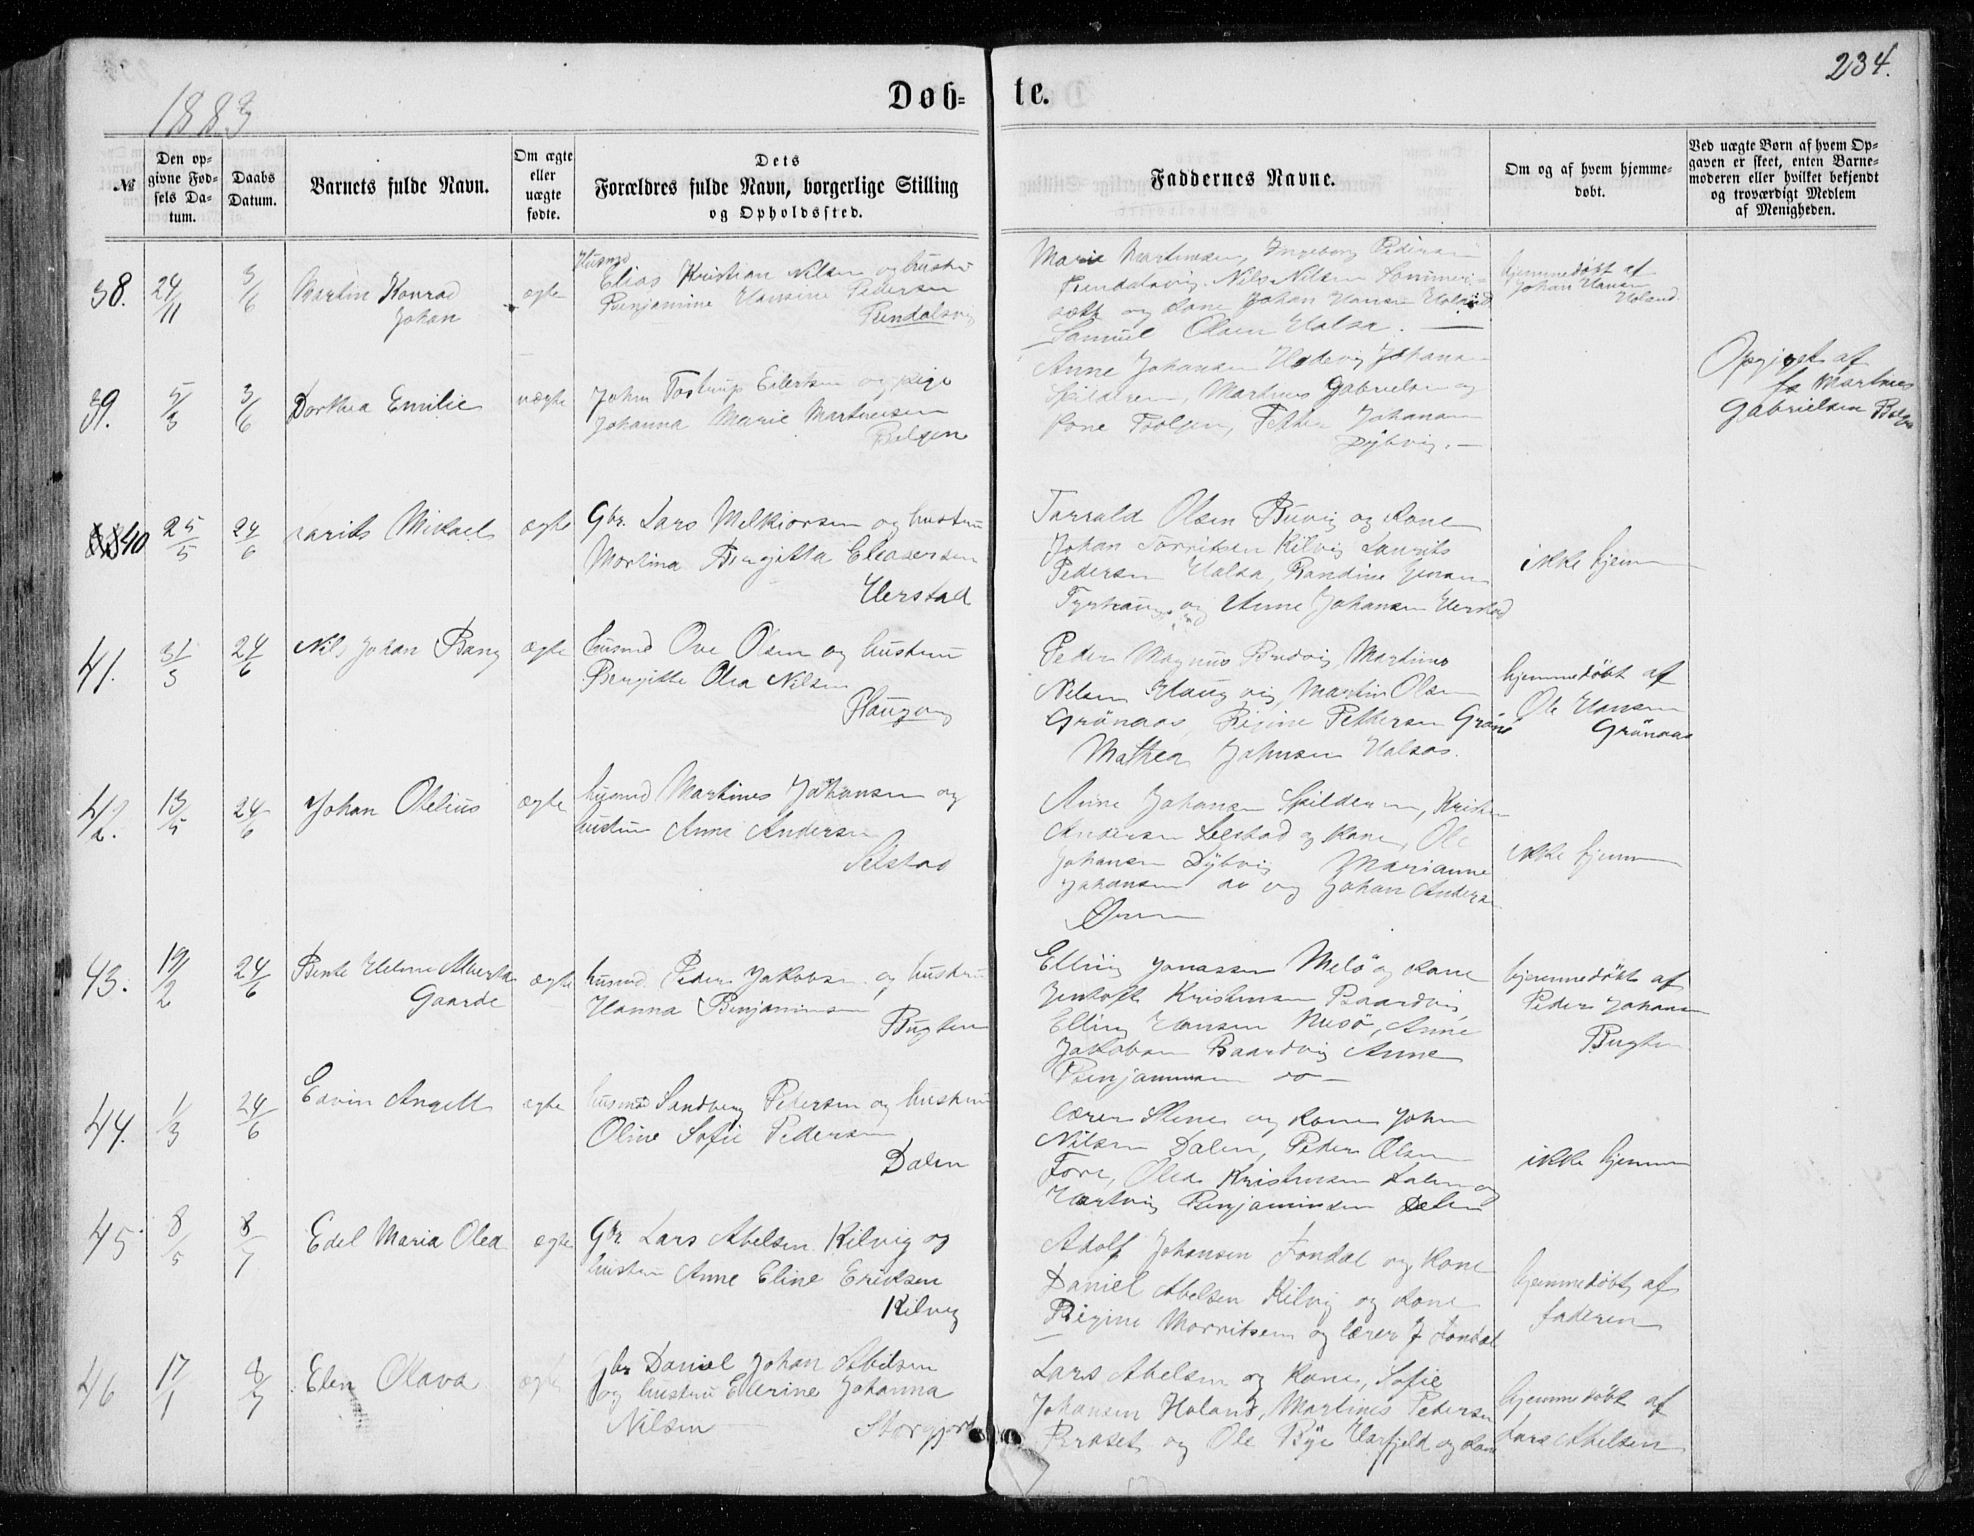 234.
1883
Døb-
te.
№
Den op-
givne Fød-
sels Da-
tum.
Daabs
Datum.
Barnets fulde Navn.
Om ægte
eller
uægte
fødte.
Dets
Forældres fulde Navn, borgerlige Stilling
og Opholdssted.
Faddernes Navne.
Om og af hvem hjemme-
døbt.
Ved uægte Børn af hvem Op-
gaven er skeet, enten Barne-
moderen eller hvilket bekjendt
og troværdigt Medlem
af Menigheden.
38.
24/11
3/6
Martin Konrad
Johan
ægte
Husmd
Elias Kristian Nilsen og hustru
Benjamine Hansine Pedersen
Marie Martinsen, Ingeborg Pedersen
Nils Nilsen
og kone Johan Hansen Holand
Samuel Olsen Halsa.
hjemmedøbt af
Johan Hansen
Holand
39.
5/3
3/6
Dorthea Emilie
uægte
Johan Tostrup Eilertsen og pige
Johanna Marie Martinsen
Bolgen
Anne Johansen Hedevig Johansen
Spilderen, Martines Gabrielsen og
kone Bolgen, Petter Johansen
Dybvig.
Opgivet af
Martines
Gabrielsen
40
25/5
24/6
Mikael
ægte
Gbr. Lars Melkiorsen og hustru
Martina Birgitta Eleasersen
Herstad
Olsen Buvig og kone
Johan Kilvig Laurits
Pedersen Halsa, Randine Jensen
og Anne Johansen Herstad
ikke hjem
41.
31/3
24/6
Nils Johan Bang
ægte
husmd Ove Olsen og hustru
Bergitte Olea Nilsen
Haugvig
Peder Magnus Buvig, Martines
Nilsen Haugvig, Martin Olsen
Grönaas, Regine Pettersen Gröna
Mathea Johnsen Halsos.
hjemmedøbt af
Ole Hansen
Grönaas
42.
13/5
24/6
Johan Otelius
ægte
husmd Martines Johansen og
hustru Anne Andersen
Selstad
Anne Johansen Spilderen, Kristen
Andersen Selstad og kone, Ole
Johansen Dybvig Marianne
Johansen do og Johan Andersen
ikke hjem
43.
19/2
24/6
Bente Helene Alberta
Gaarde
ægte
husmd. Peder Jakobsen og hustru
Hanna Benjaminsen
Bugten
Elling Jonassen Melö og kone
Jentoft Kristensen Baardvig
Elling Hansen Nusö, Anne
Jakobsen Baardvig Anne
Benjaminsen do
hjemmedøbt af
Peder Johansen
Bugten
44.
1/3
24/6
Edvin Angell
ægte
husmd Sandberg Petersen og hustru
Oline Sofie Pedersen
Dalen
Lærer Stene og kone John
Nilsen Dalen, Peder Olsen
Fore, Olea Kristensen Dalen og
Hartvig Benjaminsen Dalen
ikke hjemme
45
8/5
8/7
Edel Maria Olea
ægte
Gbr. Lars Abelsen Kilvig og
hustru Anne Eline Eriksen
Kilvig
Adolf Johansen Fondal og kone
Daniel Abelsen Kilvig og kone
Regine Morritsen og lærer J Fondal
hjemmedøbt af
faderen
46
17/1
8/7
Elen Olava
ægte
Gbr Daniel Johan Abelsen
og hustru Elerine Johanna
Nilsen Storgjord
Lars Abelsen og kone, Sofie
Johansen Holand, Martines Pedersen
Braset og Ole Bye Harfjeld og kone
hjemmedøbt af
Lars Abelsen